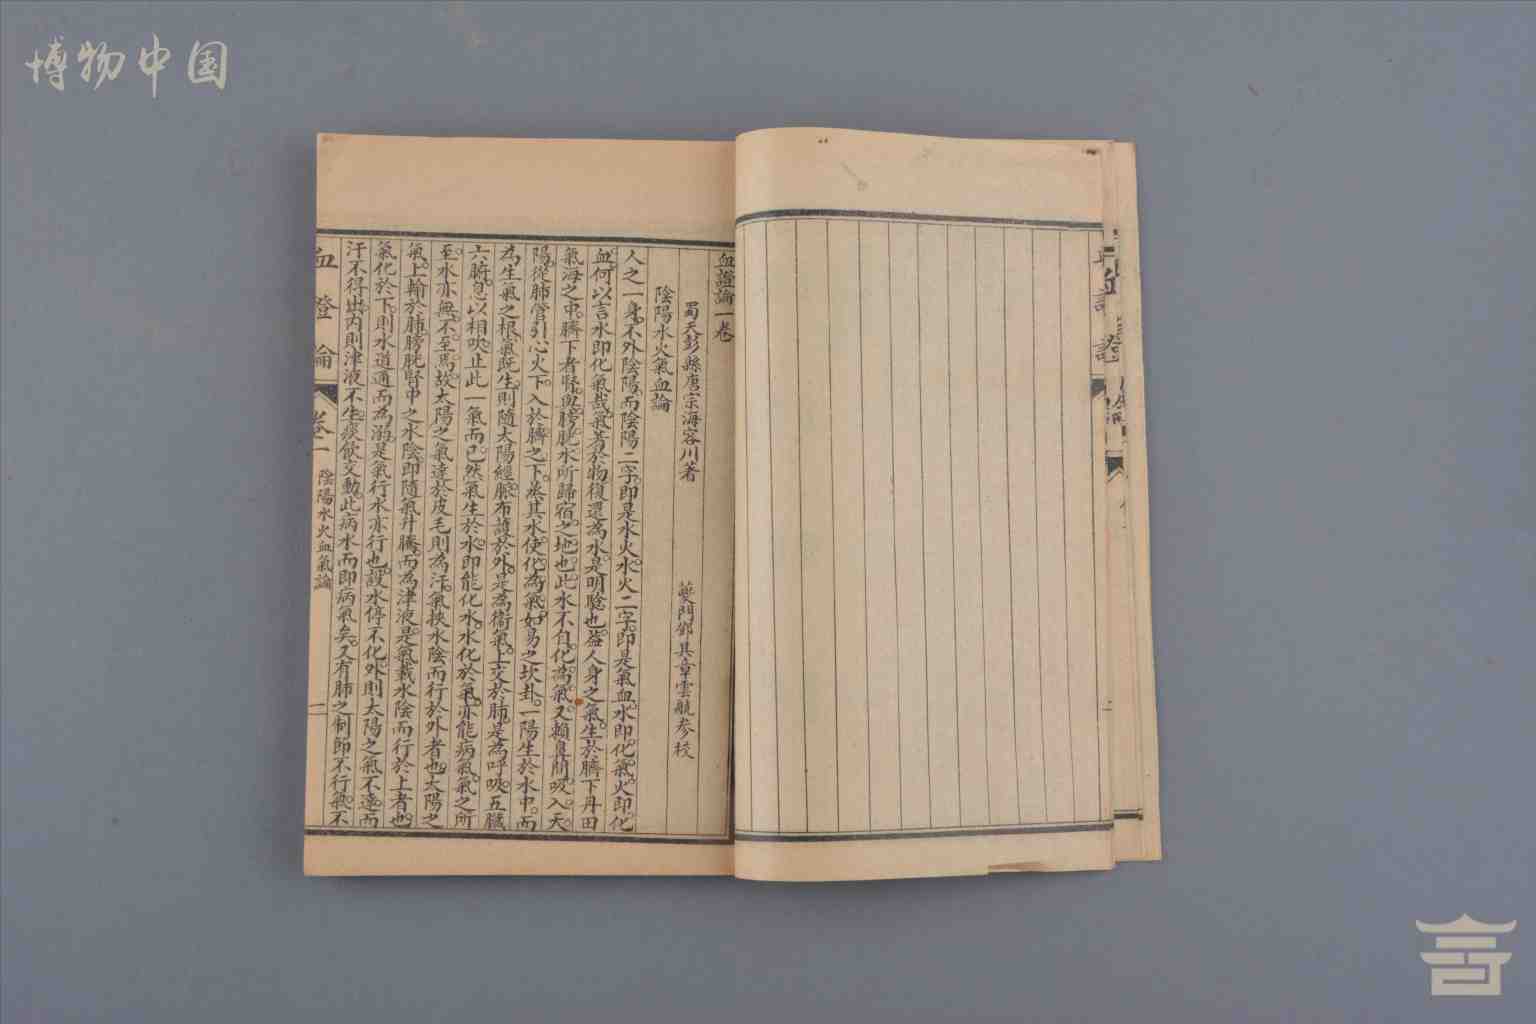 博物中国
血證論一卷
蜀天彭縣唐宗海容川著 夔門鄧其章雲航參校
陰陽水火氣血論
人之一身。不外陰陽。而陰陽二字。即是水火。水火二字。即是氣血。水即化氣。火即化
血。何以言水即化氣哉。氣著於物。復還為水。是明驗也。蓋人身之氣。生於臍下丹田
氣海之中。臍下者腎與膀胱。水所歸宿之地也。此水不自化為氣。又賴鼻間吸入。天
陽。從肺管引心火。下入於臍之下。蒸其水。使化為氣。如易之坎卦。一陽生於水中。而
為生氣之根。氣既生。則隨太陽經脈。布護於外。是為衛氣。上交於肺。是為呼吸。五臟
六腑。息以相吹。止此一氣而已。然氣生於水。即能化水。水化於氣。亦能病氣。氣之所
至。水亦無不至焉。故太陽之氣。達於皮毛則為汗。氣挾水陰而行於外者也。太陽之
氣。上輸於肺。膀胱腎中之水陰。即隨氣升騰。而為津液。是氣載水陰而行於上者也。
氣化於下。則水道通而為溺。是氣行水亦行也。設水停不化。外則太陽之氣不達。而
汗不得出。內則津液不生。痰飲交動。此病水而即病氣矣。又有肺之制節不行。氣不
血證論 卷一 陰陽水火血氣論 二